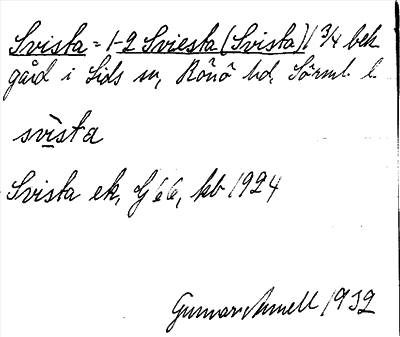 Svista = 1-2 Sviesta (Svista) 1 3/4 bek
gård i Lids sn, Rönö hd, Sörml. l.
svìsta
Svista ek, G 66, kb 1924
Gunnar Arnell 1932